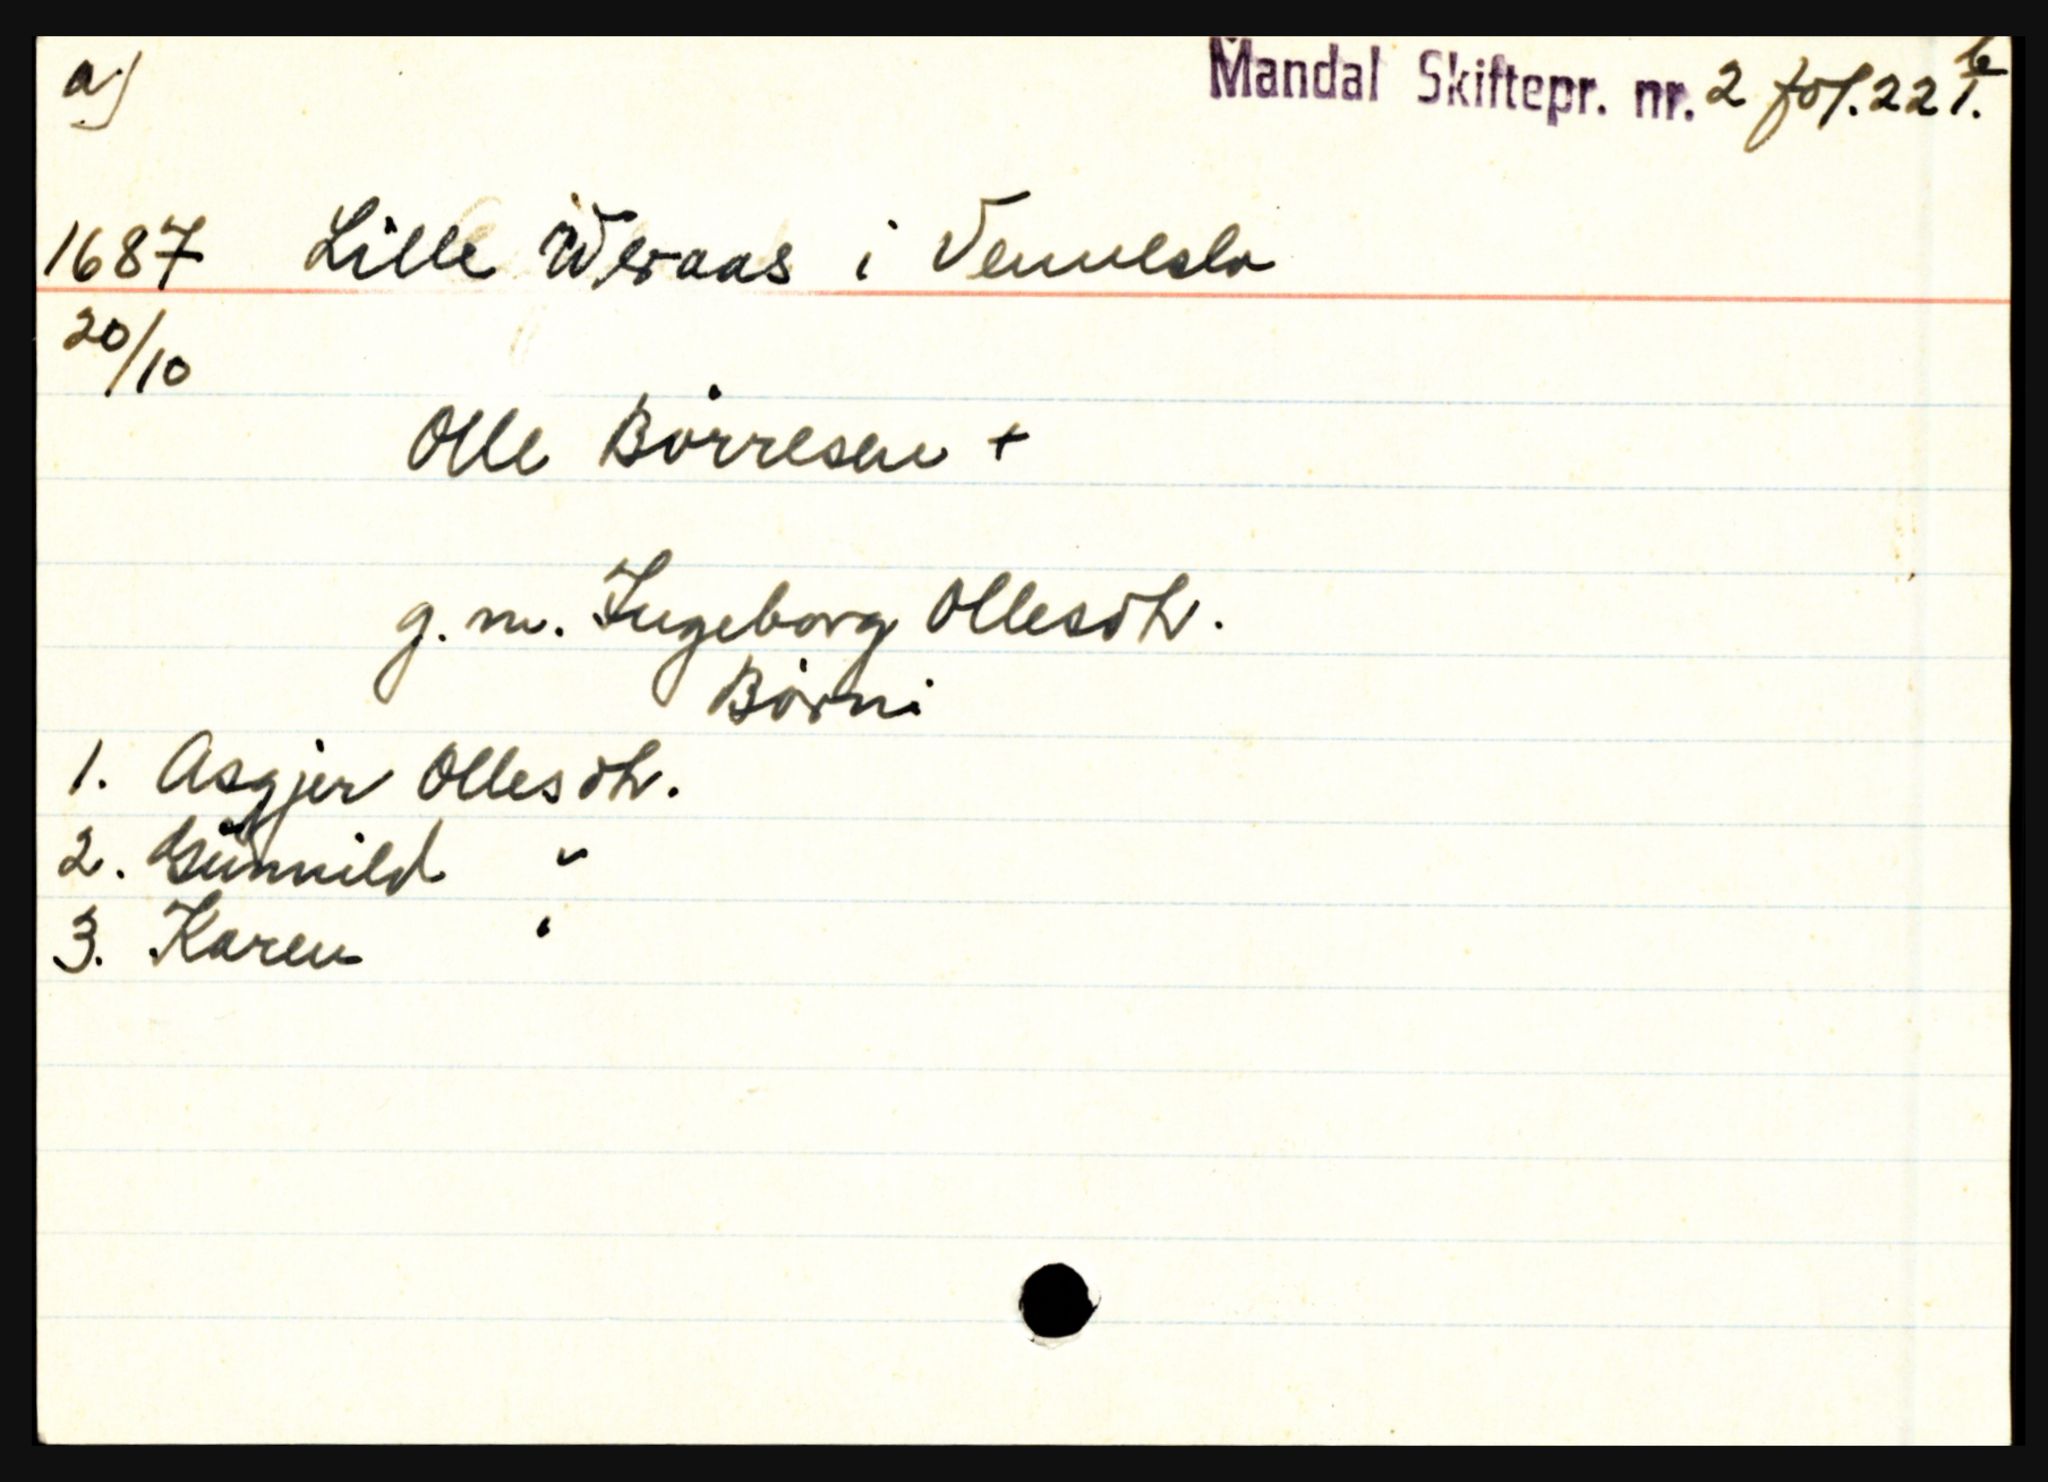 a)
Mandal Skiftepr. nr. 2 fol. 221. b
1687 Lille Weraas i Vennesla
20/10
Olle Börresen +
g. m. Ingeborg Ollesdtr.
Börn:
1. Asgjer Ollesdtr.
2. Günnild "
3. Karen "